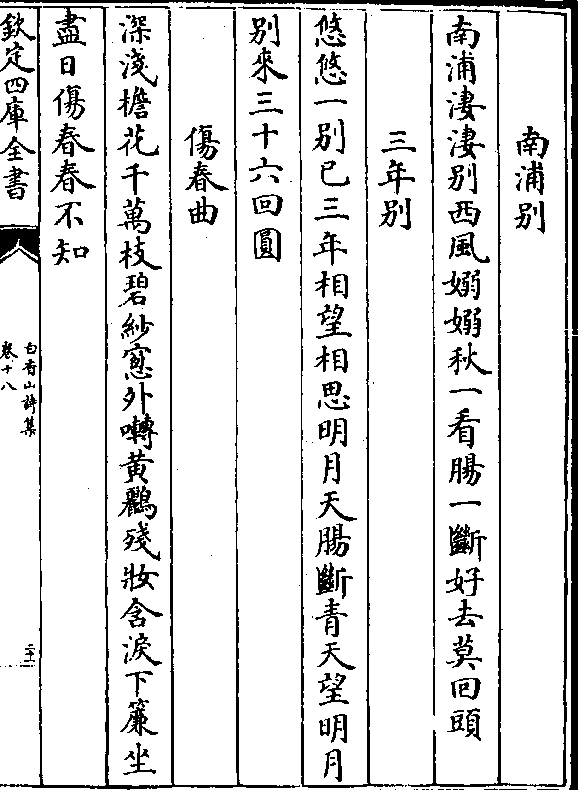 南浦别
南浦淒淒别西風嫋嫋秋一看腸一斷好去莫回頭
三年别
悠悠一别已三年相望相思明月天腸斷青天望明月
别來三十六回圓
傷春曲
深淺檐花千萬枝碧紗窻外囀黄鸝殘妝含淚下簾坐
盡日傷春春不知
欽定四庫全書
白香山詩集
卷十八